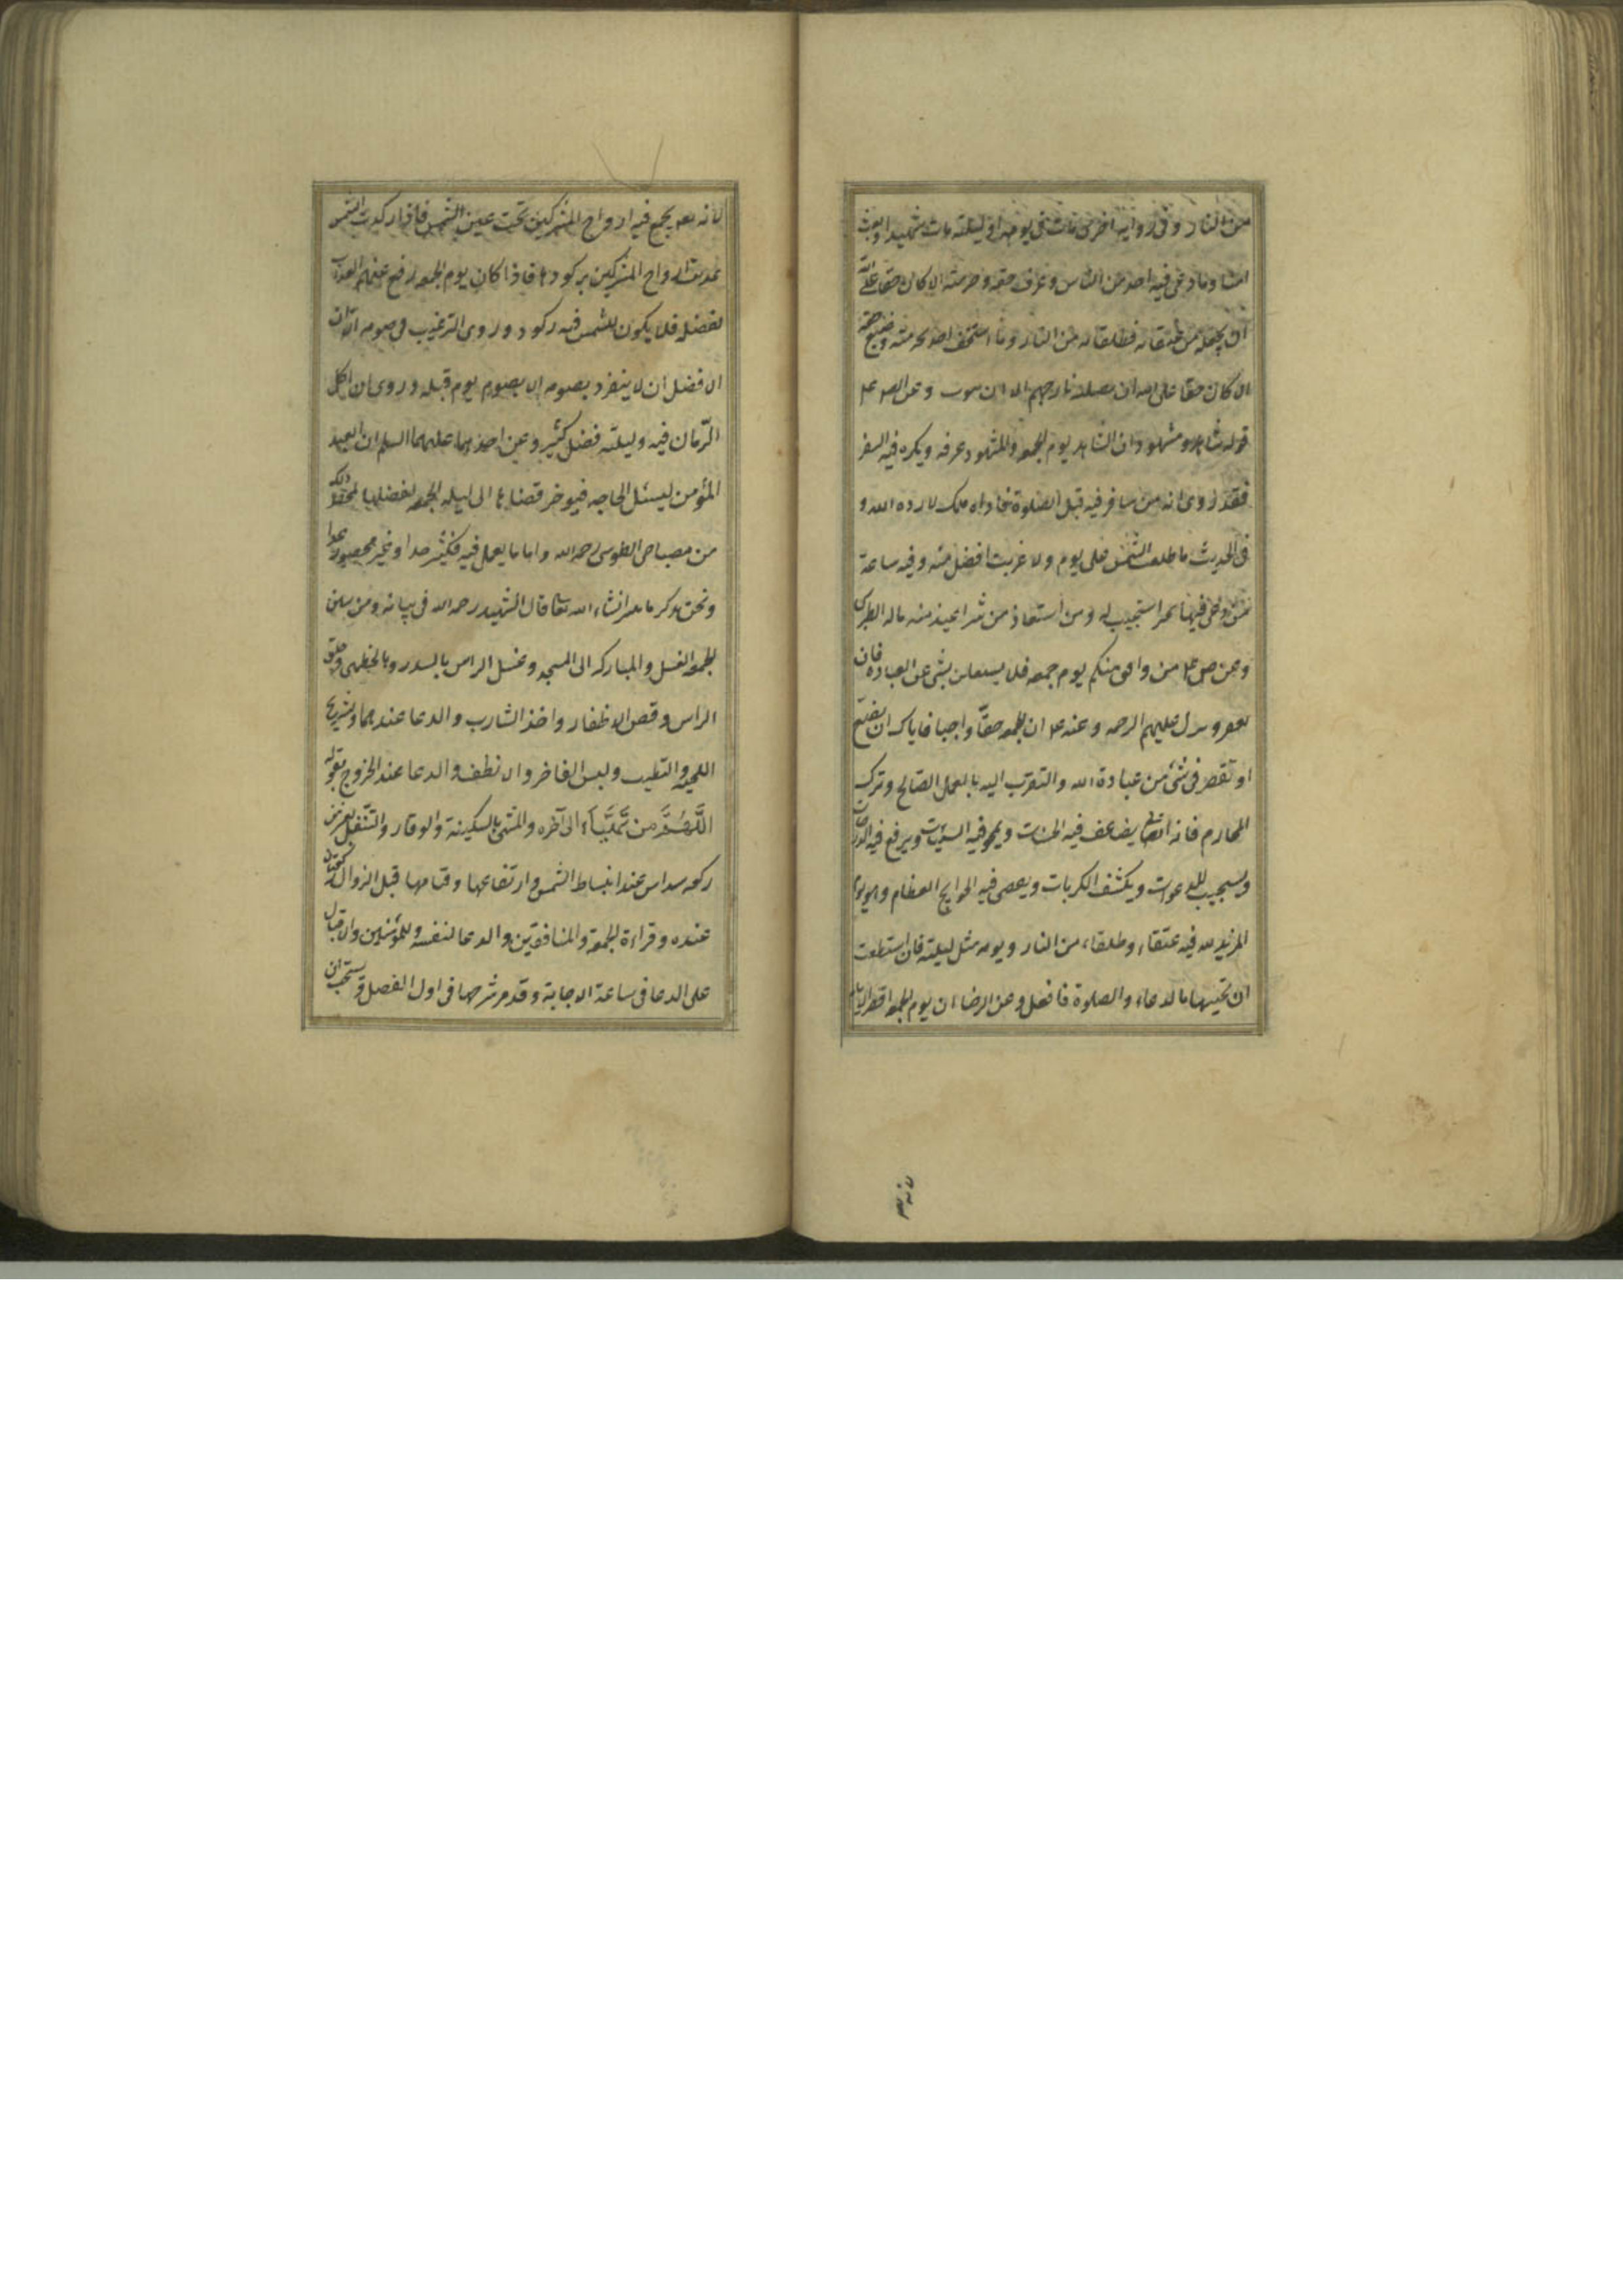 من النار وفى رواية اخرى من مات فى يومه او ليلته مات شهيدا وبعث
امنا وما دعى فيه احد من الناس وعرف حقه وحرمته الا كان حقا على الله
ان يجعله من عتقائه وطلقائه من النار وما استخف احد بحرمته وضيع حقه
الا كان حقا على الله ان يصليه نار جهنم الا ان يتوب وعن
قوله شاهد ومشهود ان الشاهد يوم الجمعه والمشهود عرفه ويكره فيه السفر
فقد روى انه من سافر فيه قبل الصلوة ناداه ملك لا رده الله و
فى الحديث ما طلعت الشمس على يوم ولا غربت افضل منه وفيه ساعة
من دعى فيها بخير استجيب له ومن استعاذ من شر اعيذ منه ماله الطبرى
وعن ص ع من وافق منكم يوم جمعه فلا يشتغلن بشى عن العبادة فان
يغفر وينزل عليهم الرحمه وعنه ع ان للجمعه حقّا واجبا فاياك ان تضيّع
او تقصر فى شئ من عبادة الله والتقرب اليه بالعمل الصالح وترك
المحارم فانه تعالى يضاعف فيه الحسنات ويمحو فيه السيئات ويرفع فيه الدرجات
ويستجيب للدعوات ويكشف الكربات ويقضى فيه الحوايج العظام وهو يوم
المزيد لله فيه عتقاء وطلقاء من النار ويومه مثل ليلته فان استطعت
ان تحييها بالدعاء والصلوة فافعل وعن الرضا ان يوم الجمعه اقصر الايام
لانه
لانه يجمع فيه ارواح المشركين تحت عين الشمس فاذا ركدت الشمس
عذبت ارواح المشركين بركودها فاذا كان يوم الجمعه رفع عنهم العذاب
لفضله فلا يكون للشمس فيه ركود وروى الترغيب فى صومه الا ان
الافضل ان لا ينفرد بصومه الا بصوم يوم قبله وروى ان اكل
الرّمان فيه وليلته فضل كثير وعن احدهما عليهما السلم ان العبد
المؤمن ليسئل الحاجه فيؤخر قضاءها الى ليله الجمعه لفضلها ذلك
من مصباح الطوسى رحمه الله واما ما يعمل فيه فكثير جدا وغير محصور عدا
ونحن نذكر ما انشاء الله تعالى قال الشهيد رحمه الله فى بيانه ومن سنن
الجمعه الغسل والمباركه الى المسجد وغسل الراس بالسدر وبالخطمى وحلق
الراس وقص الاظفار واخذ الشارب والدعا عندهما وتسريح
اللحيه والتطيب ولبس الفاخر والانظف والدعا عند الخروج بقوله
اللَّهُمَّ مَن تَهَيَّأ الى آخره والمشى بالسكينة والوقار والتنفل بعشرين
ركعه سداس عند انبساط الشمس وارتفاعها وقيامها قبل الزوال ركعتان
عنده وقراءة الجمعة والمنافقين والدعا لنفسه وللمؤمنين والاقبال
على الدعا فى ساعة الاجابة وقد مر شرحها فى اول الفصل ويستحب ان